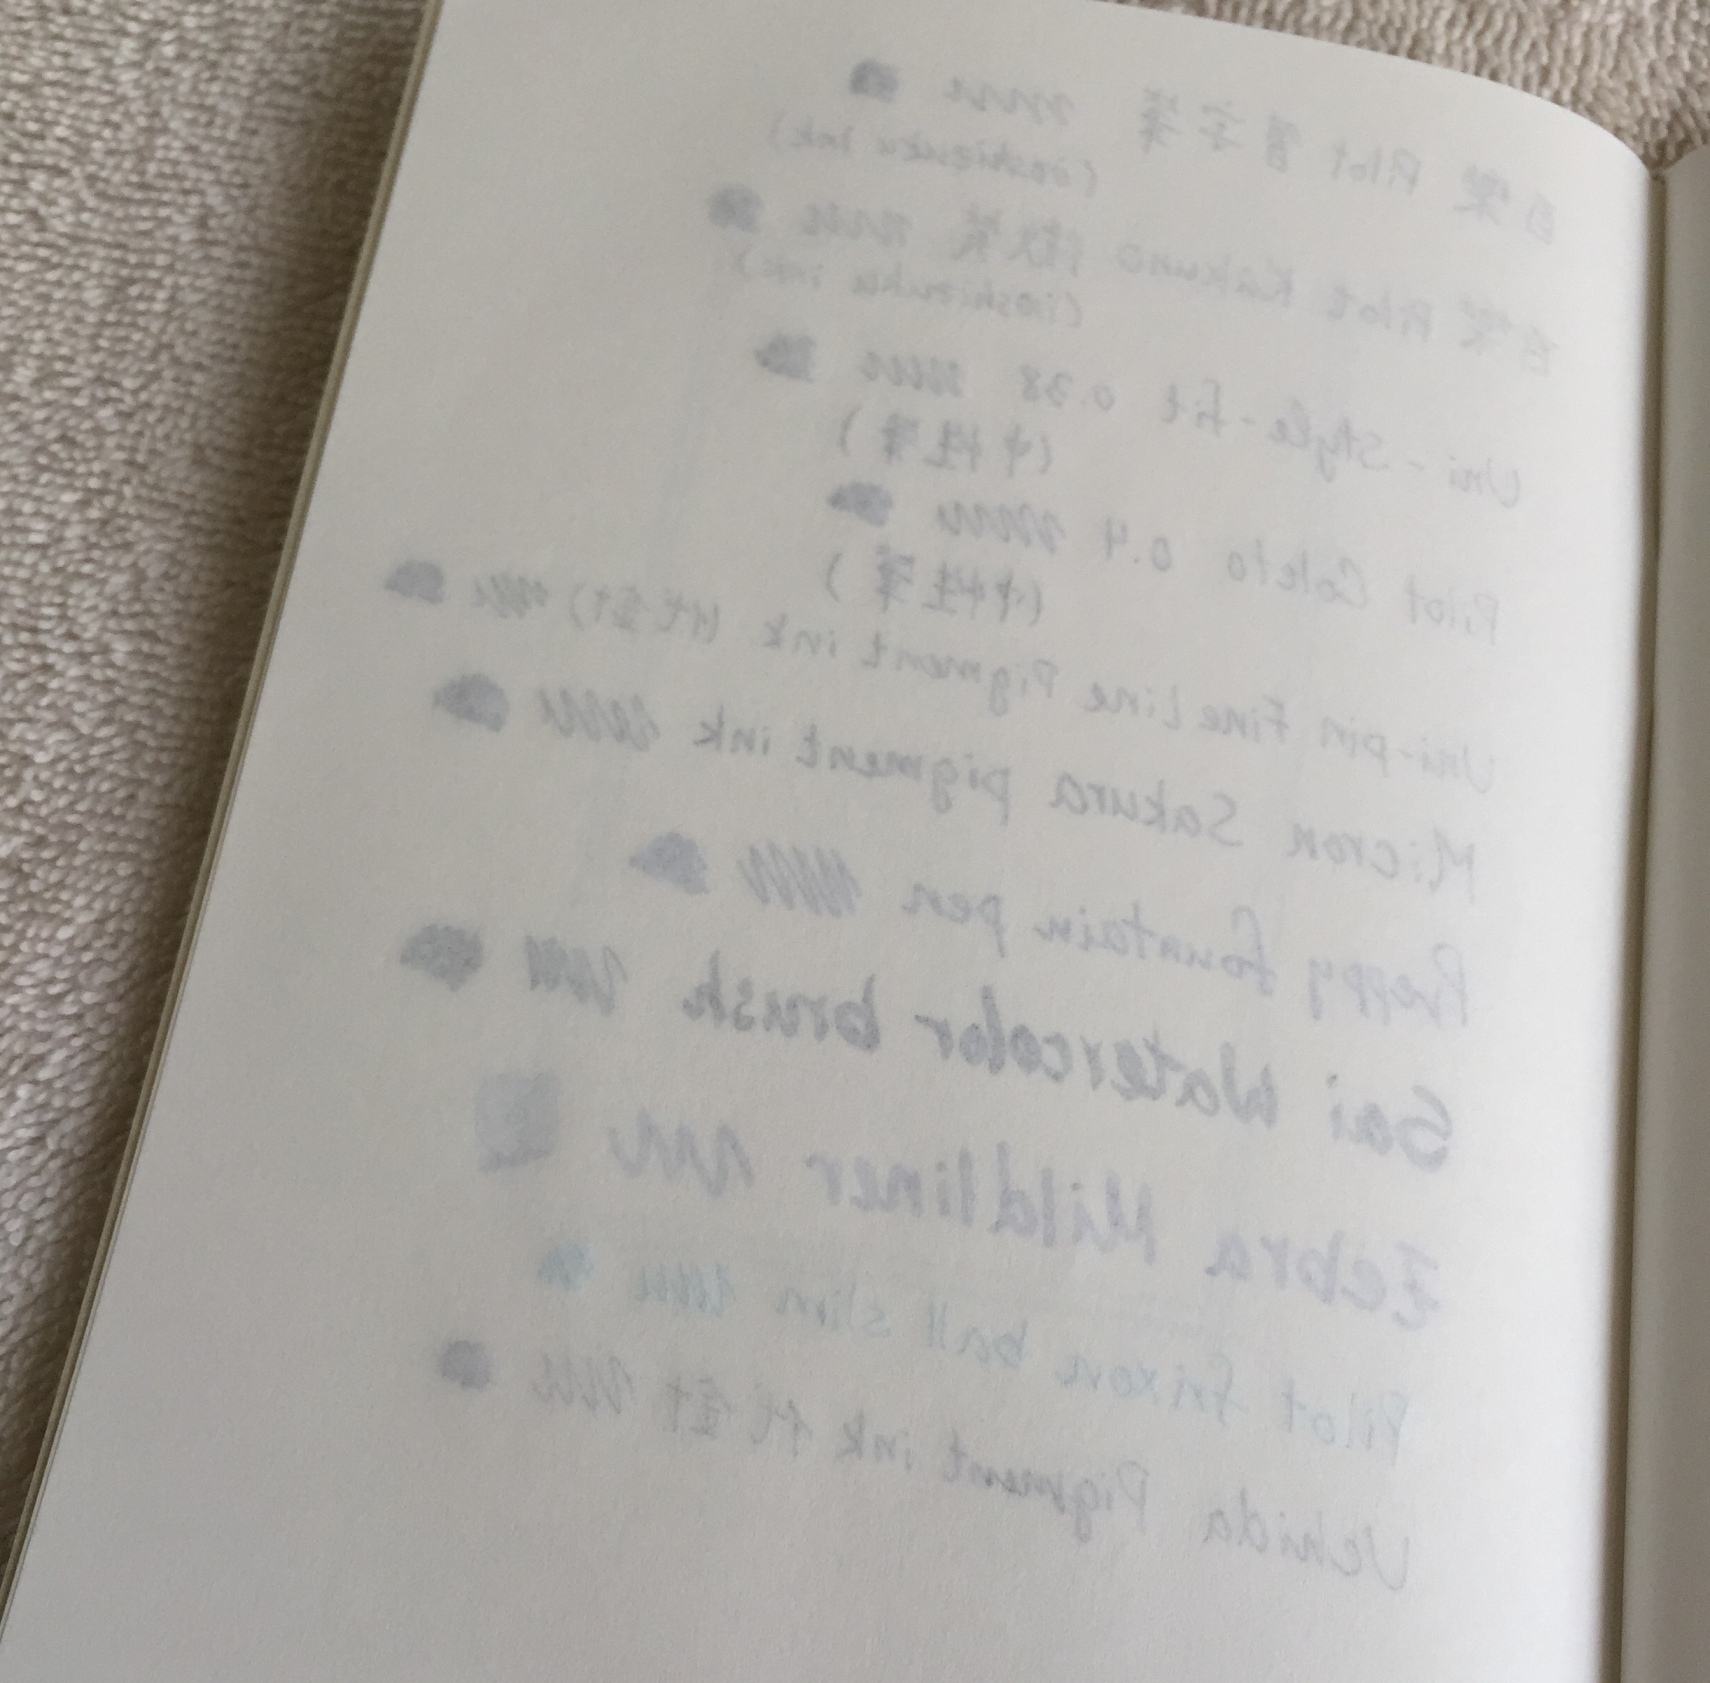 百樂 Pilot 習字筆
(iroshizuku ink)
百樂 Pilot Kakuno 微笑
(iroshizuku ink)
Uni - Style-fit 0.38
(中性筆)
Pilot Coleto 0.4
(中性筆)
Uni-pin Fine Line Pigment ink (代針)
Micron Sakura pigment ink
Preppy fountain pen
Sai Watercolor brush
Zebra Mildliner
Pilot frixon ball slim
Uchida Pigment ink 代針